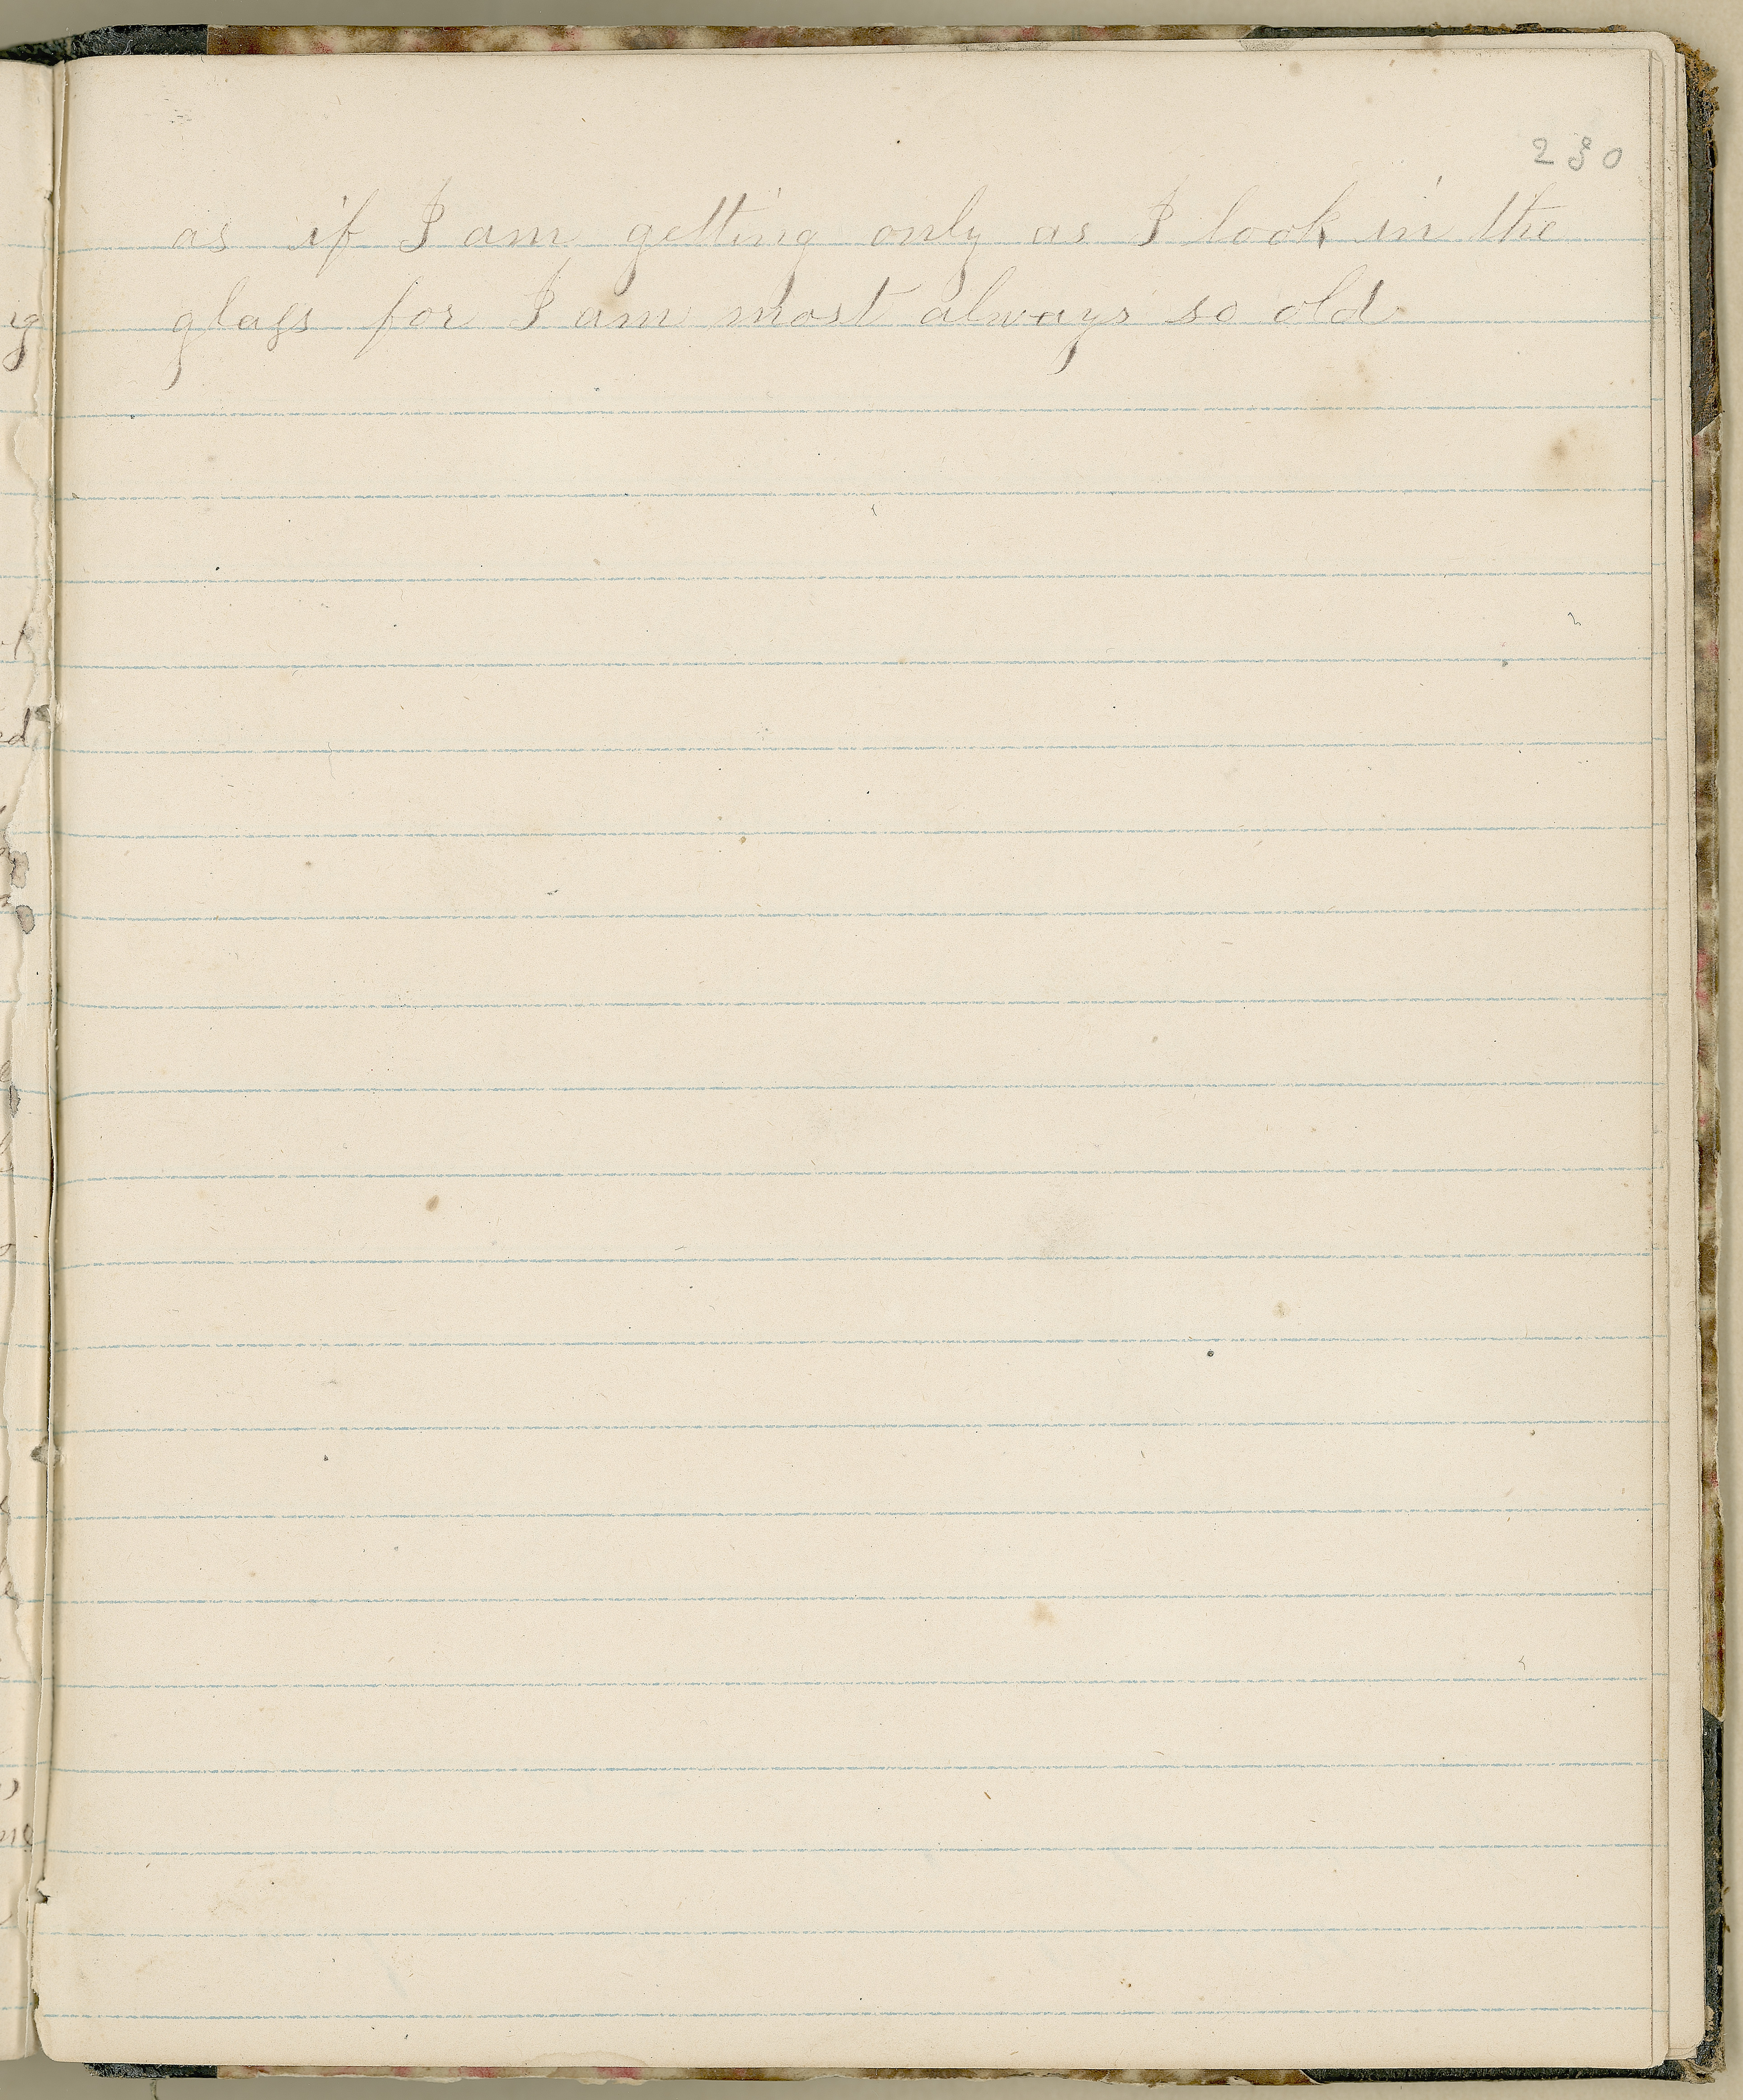 230
as if I am getting only as I look in the
glass for I am most always so old